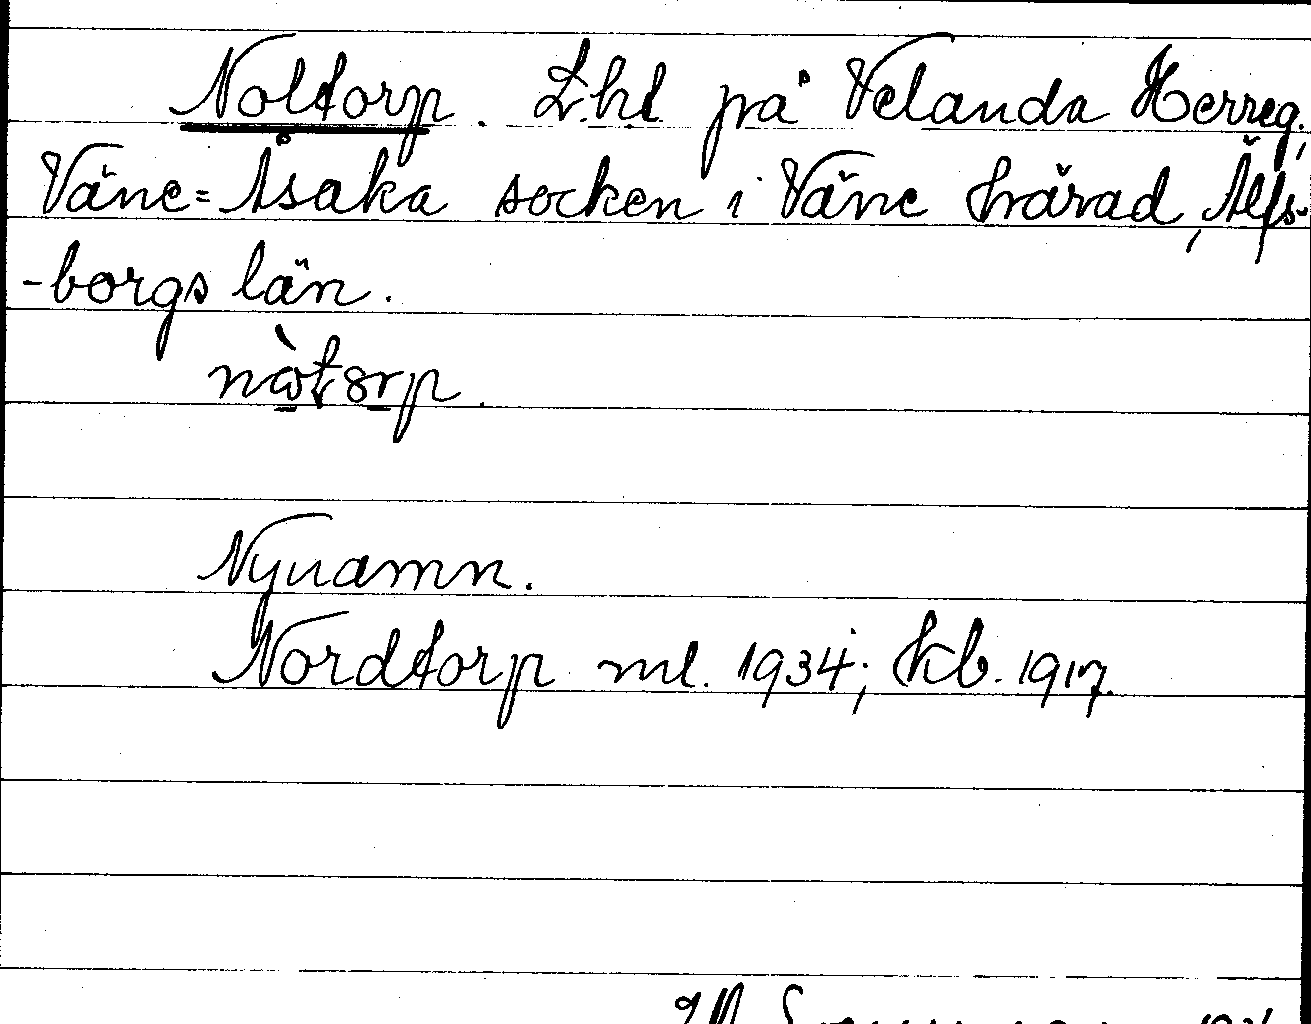 Noltorp. Lht på Velanda Herreg.,
Väne-Åsaka socken i Väne härad, Älfs-
-borgs län.
Nynamn.
Nordtorp ml. 1934; kb. 1917.